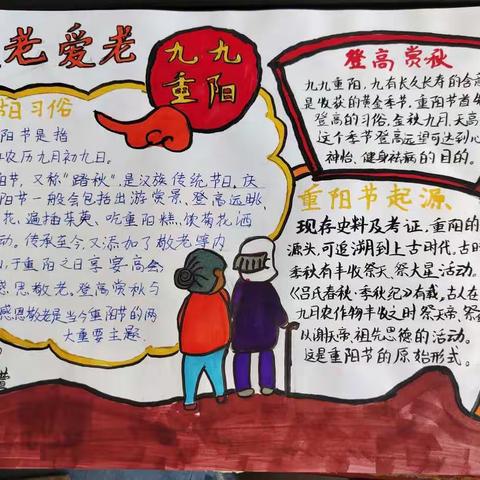 老爱老
九九
重阳
习俗
阳节是指
农历九月初九日。
阳节，又称"踏秋"，是汉族传统节日。庆
阳节一般会包括出游赏景、登高远眺、
花、遍插茱萸、吃重阳糕、饮菊花酒
动。传承至今，又添加了敬老等内
于重阳之日享宴高会，
感恩敬老。登高赏秋与
感恩敬老是当今重阳节的两
大重要主题.
登高赏秋
九九重阳，九有长久长寿的含
是收获的黄金季节，重阳节首
登高的习俗，金秋九月，天高
这个季节登高远望可达到心
神怡、健身祛病的目的。
重阳节起源
现存史料及考证，重阳的
源头，可追溯到上古时代，古时
季秋有丰收祭天、祭大星活动。
《吕氏春秋·季秋纪》有载，古人在
九月农作物丰收之时祭天帝、祭
以谢天帝、祖先恩德的活动。
这是重阳节的原始形式。